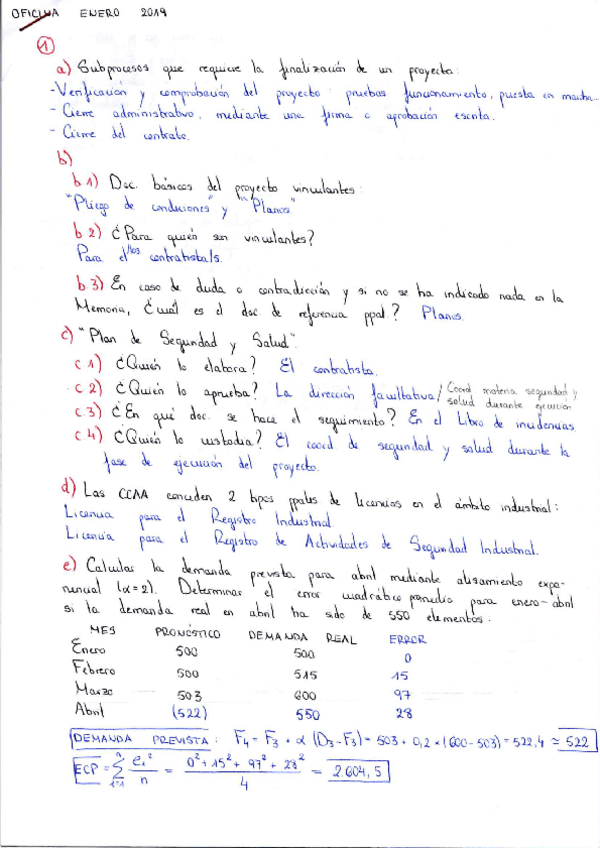 OFICINA ENERO 2019
1
a) Subprocesos que requiere la finalización de un proyecto:
- Verificación y comprobación del proyecto: pruebas funcionamiento, puesta en marcha...
- Cierre administrativo, mediante una firma o aprobación escrita.
- Cierre del contrato.
b)
b1) Doc. básicos del proyecto vinculantes:
"Pliego de condiciones" y "Planos"
b2) ¿Para quién son vinculantes?
Para el/los contratista/s.
b3) En caso de duda o contradicción y si no se ha indicado nada en la
Memoria, ¿cuál es el doc. de referencia ppal.? Planos.
c) "Plan de Seguridad y Salud".
c1) ¿Quién lo elabora? El contratista.
c2) ¿Quién lo aprueba? La dirección facultativa/ Coord materia seguridad y
salud durante ejecución
c3) ¿En qué doc. se hace el seguimiento? En el Libro de incidencias.
c4) ¿Quién lo custodia? El coord de seguridad y salud durante la
fase de ejecución del proyecto.
d) Las CCAA conceden 2 tipos ppales de licencias en el ámbito industrial:
Licencia para el Registro Industrial.
Licencia para el Registro de Actividades de Seguridad Industrial.
e) Calcular la demanda prevista para abril mediante alisamiento expo-
nencial (α=2). Determinar el error cuadrático promedio para enero-abril
si la demanda real en abril ha sido de 550 elementos:
MES PRONÓSTICO DEMANDA REAL ERROR
Enero 500 500 0
Febrero 500 515 15
Marzo 503 600 97
Abril (522) 550 28
DEMANDA PREVISTA: F4 = F3 + α (D3-F3) = 503 + 0,2 × (600-503) = 522,4 ≈ 522
ECP = Σ ei²/n = (0²+15²+97²+28²)/4 = 2.604,5